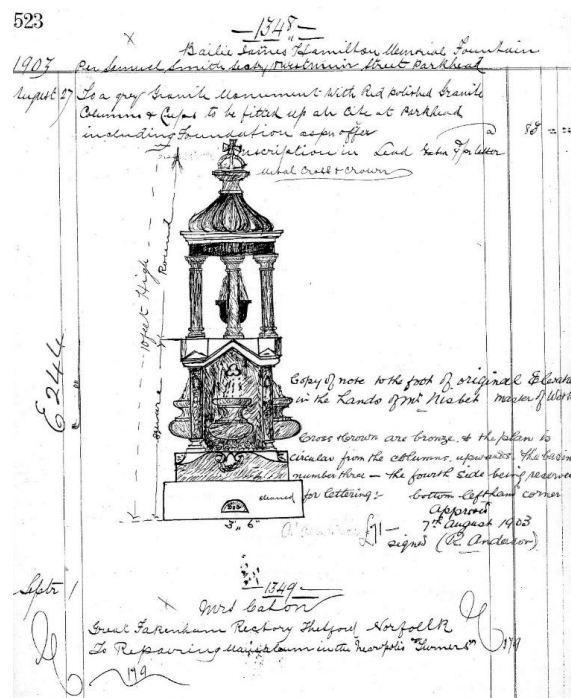 523
1348
Bailie James Hamilton Memorial Fountain
1903 Per Samuel Smith Westmuir Street Parkhead
August 27 To a grey Granite Monument With Red polished Granite
Columns & Caps to be fitted up at Site at Parkhead
including Foundation as pr offer
Inscription in Lead Extra pr letter
Metal Cross & Crown
a 83 = =
10 feet High
Round
Square
E 244
Copy of note to the foot of original Elevati
in the hands of Mr Nisbet master of Work
Cross & Crown are bronze & the plan is
circular from the columns upwards. The basin
number three — the fourth side being reserve
for lettering :- bottom left hand corner
approved
£71 — 7th August 1903
signed (R Anderson)
3" 6"
Septr 1
1349
Mrs Caton
Great Fakenham Rectory Thetford Norfolk
To Repairing Mausoleum in the Necropolis "Turners"
179
179